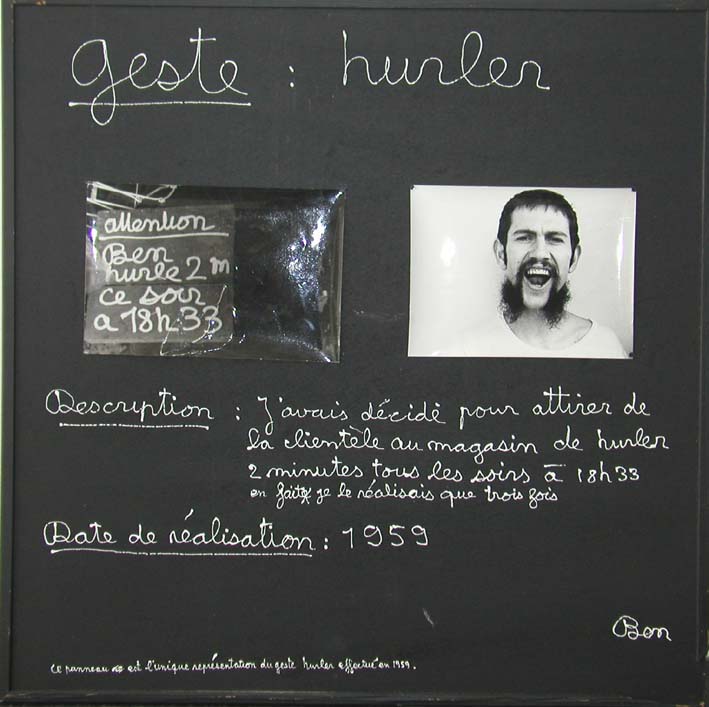 geste : hurler
attention
Ben
hurle 2 m
ce soir
a 18h.33
Description : J'avais décidé pour attirer de
la clientèle au magasin de hurler
2 minutes tous les soirs à 18h33
en fait je le réalisais que trois fois
Date de réalisation : 1959
Ben
ce panneau est l'unique représentation du geste hurler effectué en 1959.